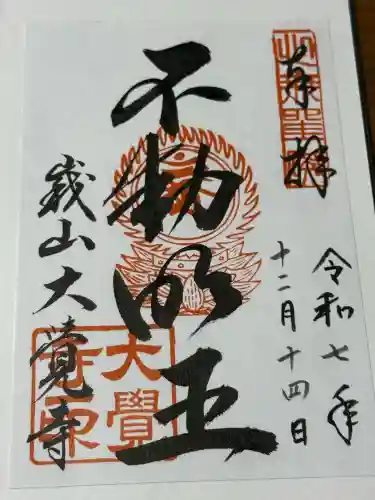 奉拝
令和七年
十二月十四日
不動明王
峩山大覺寺
大覺